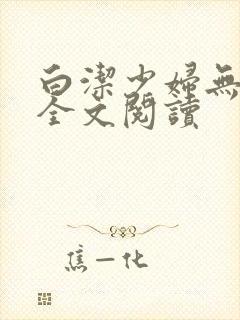 白潔少婦無
全文閱讀
焦一化